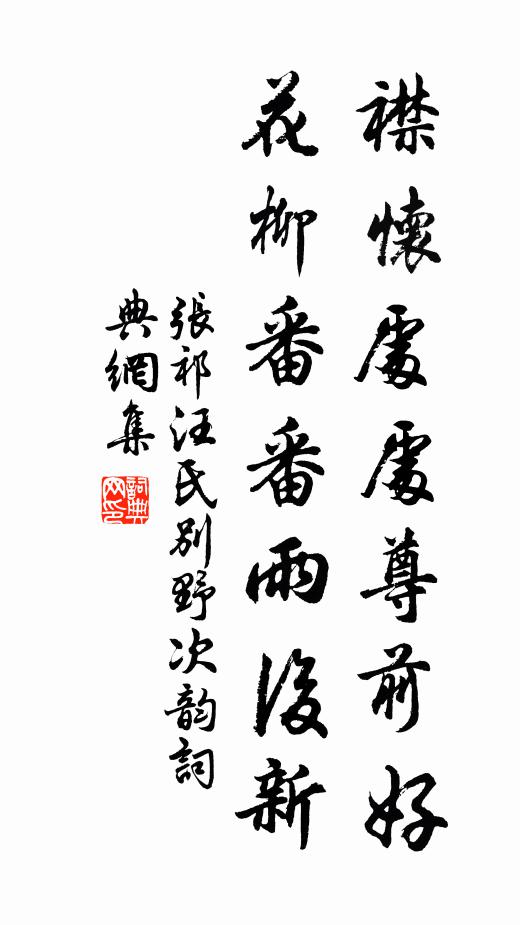 襟懷處處尊前好
花柳番番雨後新
張祁汪氏別野次韵詞
典網集
詞典网印